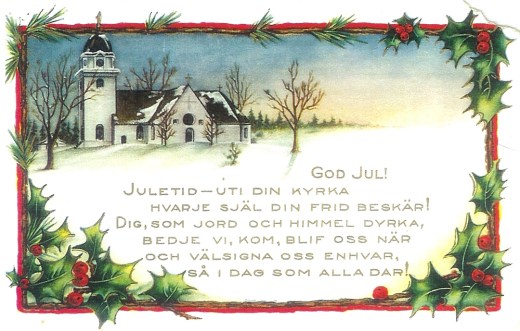 GOD JUL!
JULETID—UTI DIN KYRKA
HVARJE SJÄL DIN FRID BESKÄR!
DIG, SOM JORD OCH HIMMEL DYRKA,
BEDJE VI, KOM, BLIF OSS NÄR
OCH VÄLSIGNA OSS ENHVAR,
SÅ I DAG SOM ALLA DAR!